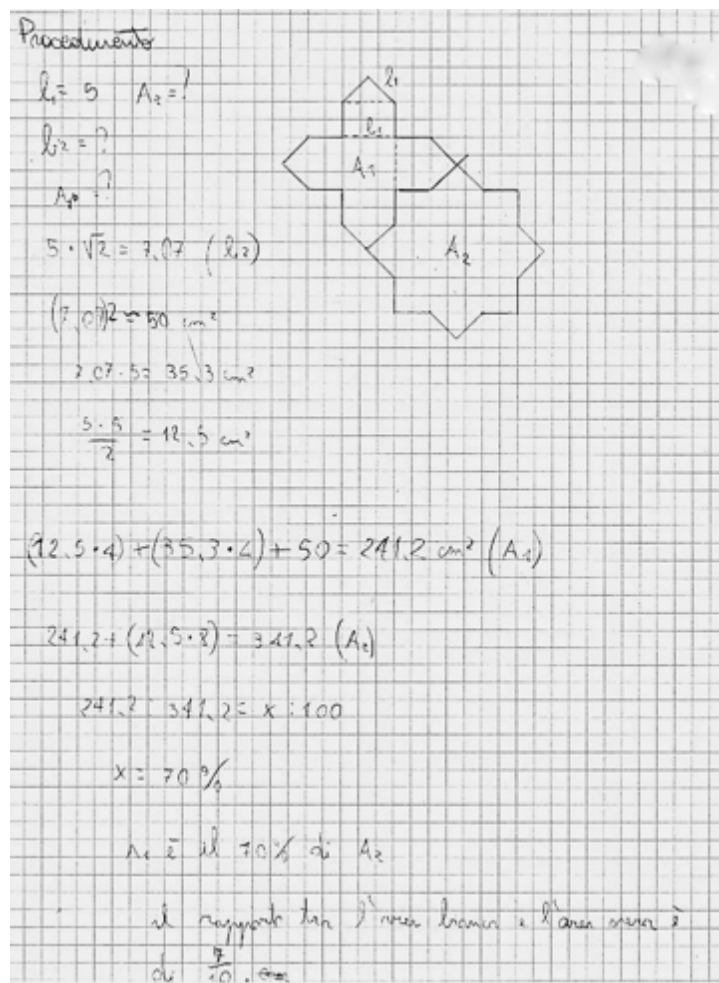 Procedimento
l₁ = 5 A₂ = ?
l₂ = ?
l₁
l₁
A₁
A₂
5 · √2 = 7,07 (l₂)
(7,07)2 ≃ 50 cm²
7,07 · 5 = 35,3 cm²
5 · 5 / 2 = 12,5 cm²
(12,5 · 4) + (35,3 · 4) + 50 = 241,2 cm² (A₁)
241,2 + (12,5 · 8) = 341,2 (A₂)
241,2 : 341,2 = x : 100
x = 70 %
A₁ è il 70% di A₂
il rapporto tra l'area bianca e l'area nera è
di 7/10.